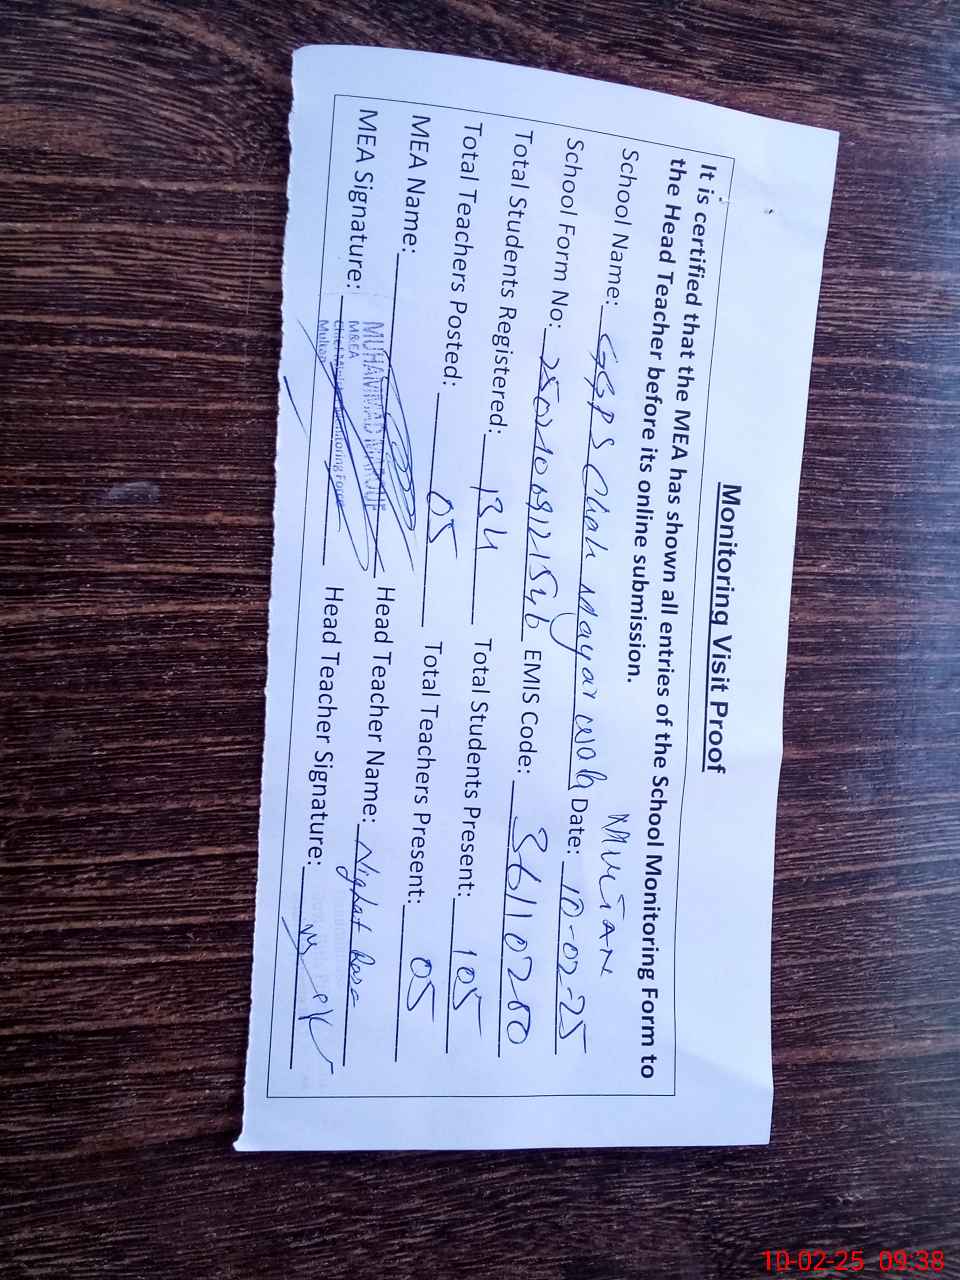 Monitoring Visit Proof
It is certified that the MEA has shown all entries of the School Monitoring Form to
the Head Teacher before its online submission.
MULTAN
School Name: GGPS Chah Mayar wala Date: 10-02-25
School Form No: 25021009121546 EMIS Code: 36110280
Total Students Registered: 134 Total Students Present: 105
Total Teachers Posted: 05 Total Teachers Present: 05
MEA Name: MUHAMMAD Head Teacher Name: Nighat
M&EA
MEA Signature: Chief Monitoring Force Head Teacher Signature:
Multan
10-02-25 09:38